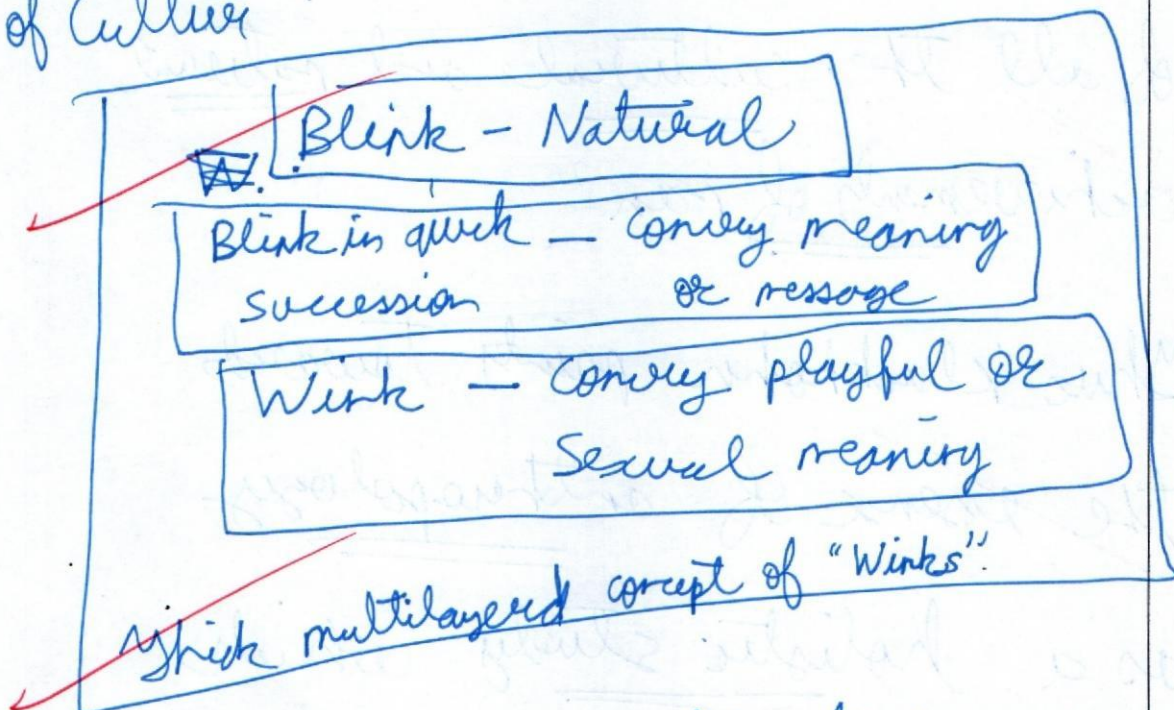 of Culture
Blink - Natural
Blink in quick — convey meaning
succession or message
Wink — convey playful or
Sexual meaning
Thick multilayerd concept of "Winks".